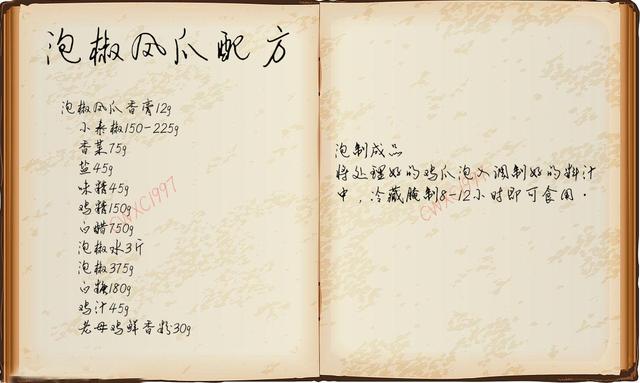 泡椒凤爪配方
泡椒凤爪香膏12g
小米椒150-225g
香菜75g
盐45g
味精45g
鸡精150g
白醋750g
泡椒水3斤
泡椒375g
白糖180g
鸡汁45g
老母鸡鲜香粉30g
CWXC1997
泡制成品
将处理好的鸡爪泡入调制好的料汁
中，冷藏腌制8-12小时即可食用.
CWXC1997